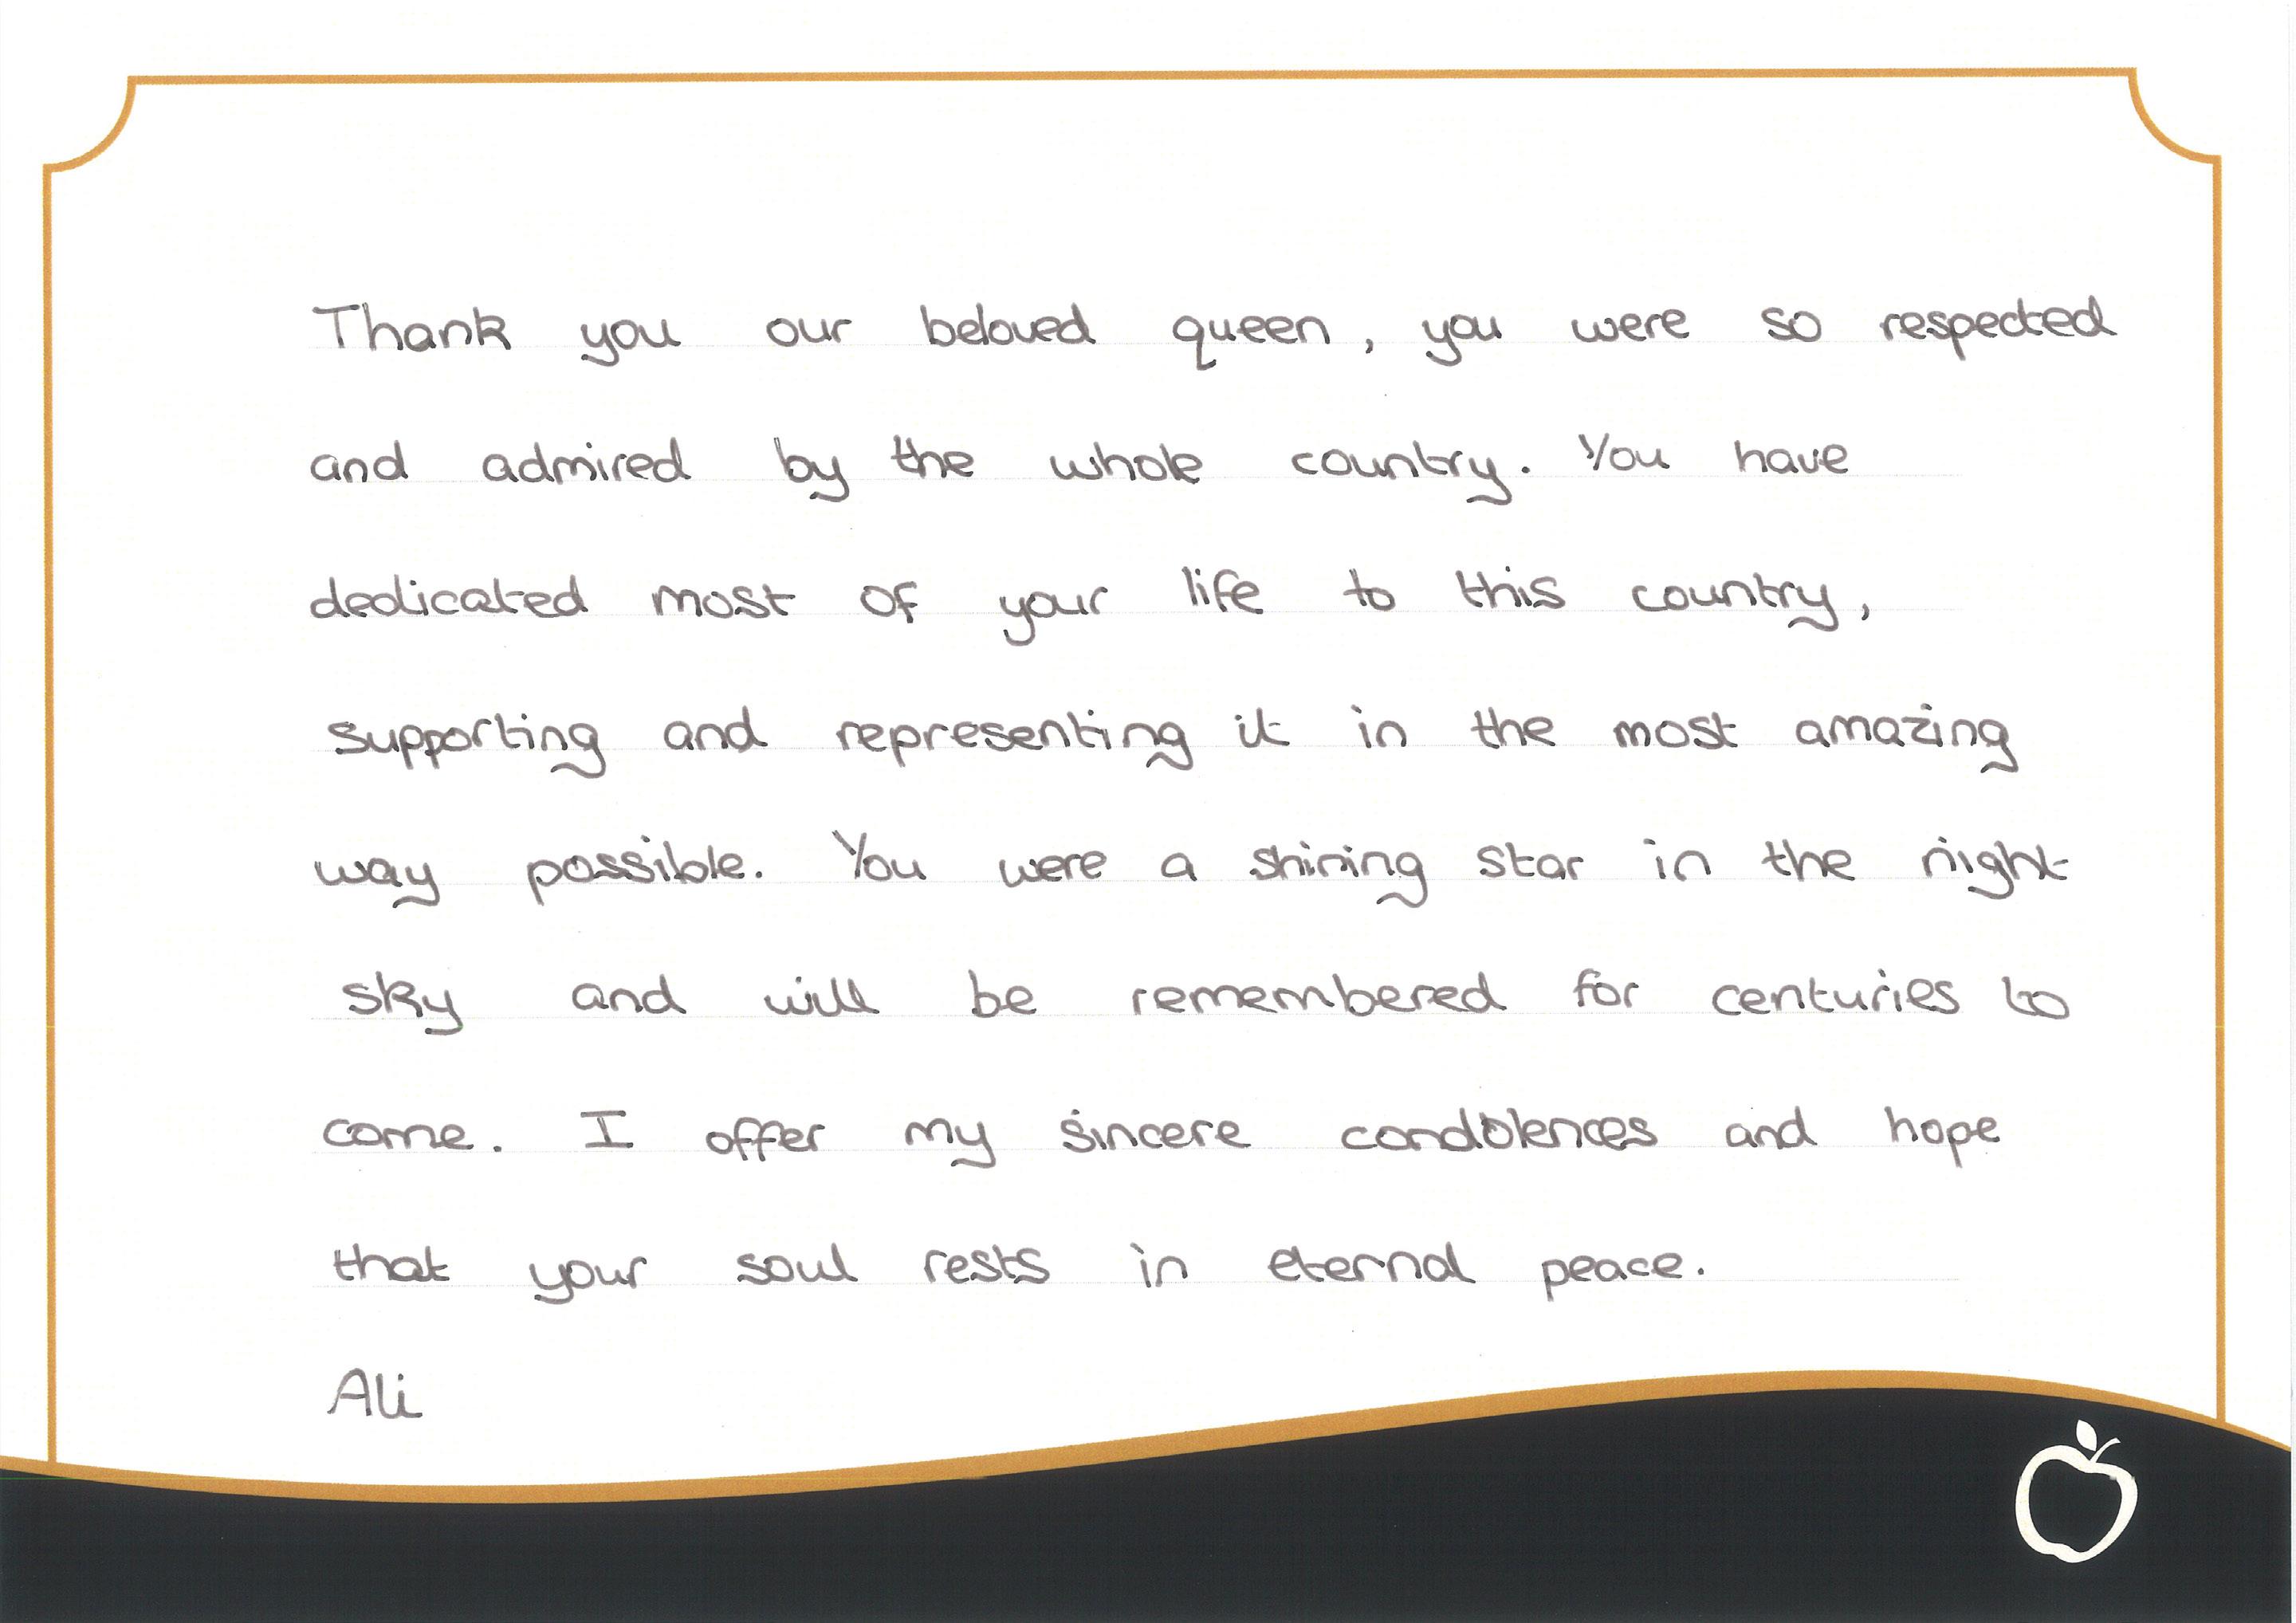 Thank you our beloved queen, you were so respected
and admired by the whole country. You have
dedicated most of your life to this country,
supporting and representing it in the most amazing
way possible. You were a shining star in the night
sky and will be remembered for centuries to
come. I offer my sincere condolences and hope
that your soul rests in eternal peace.
Ali